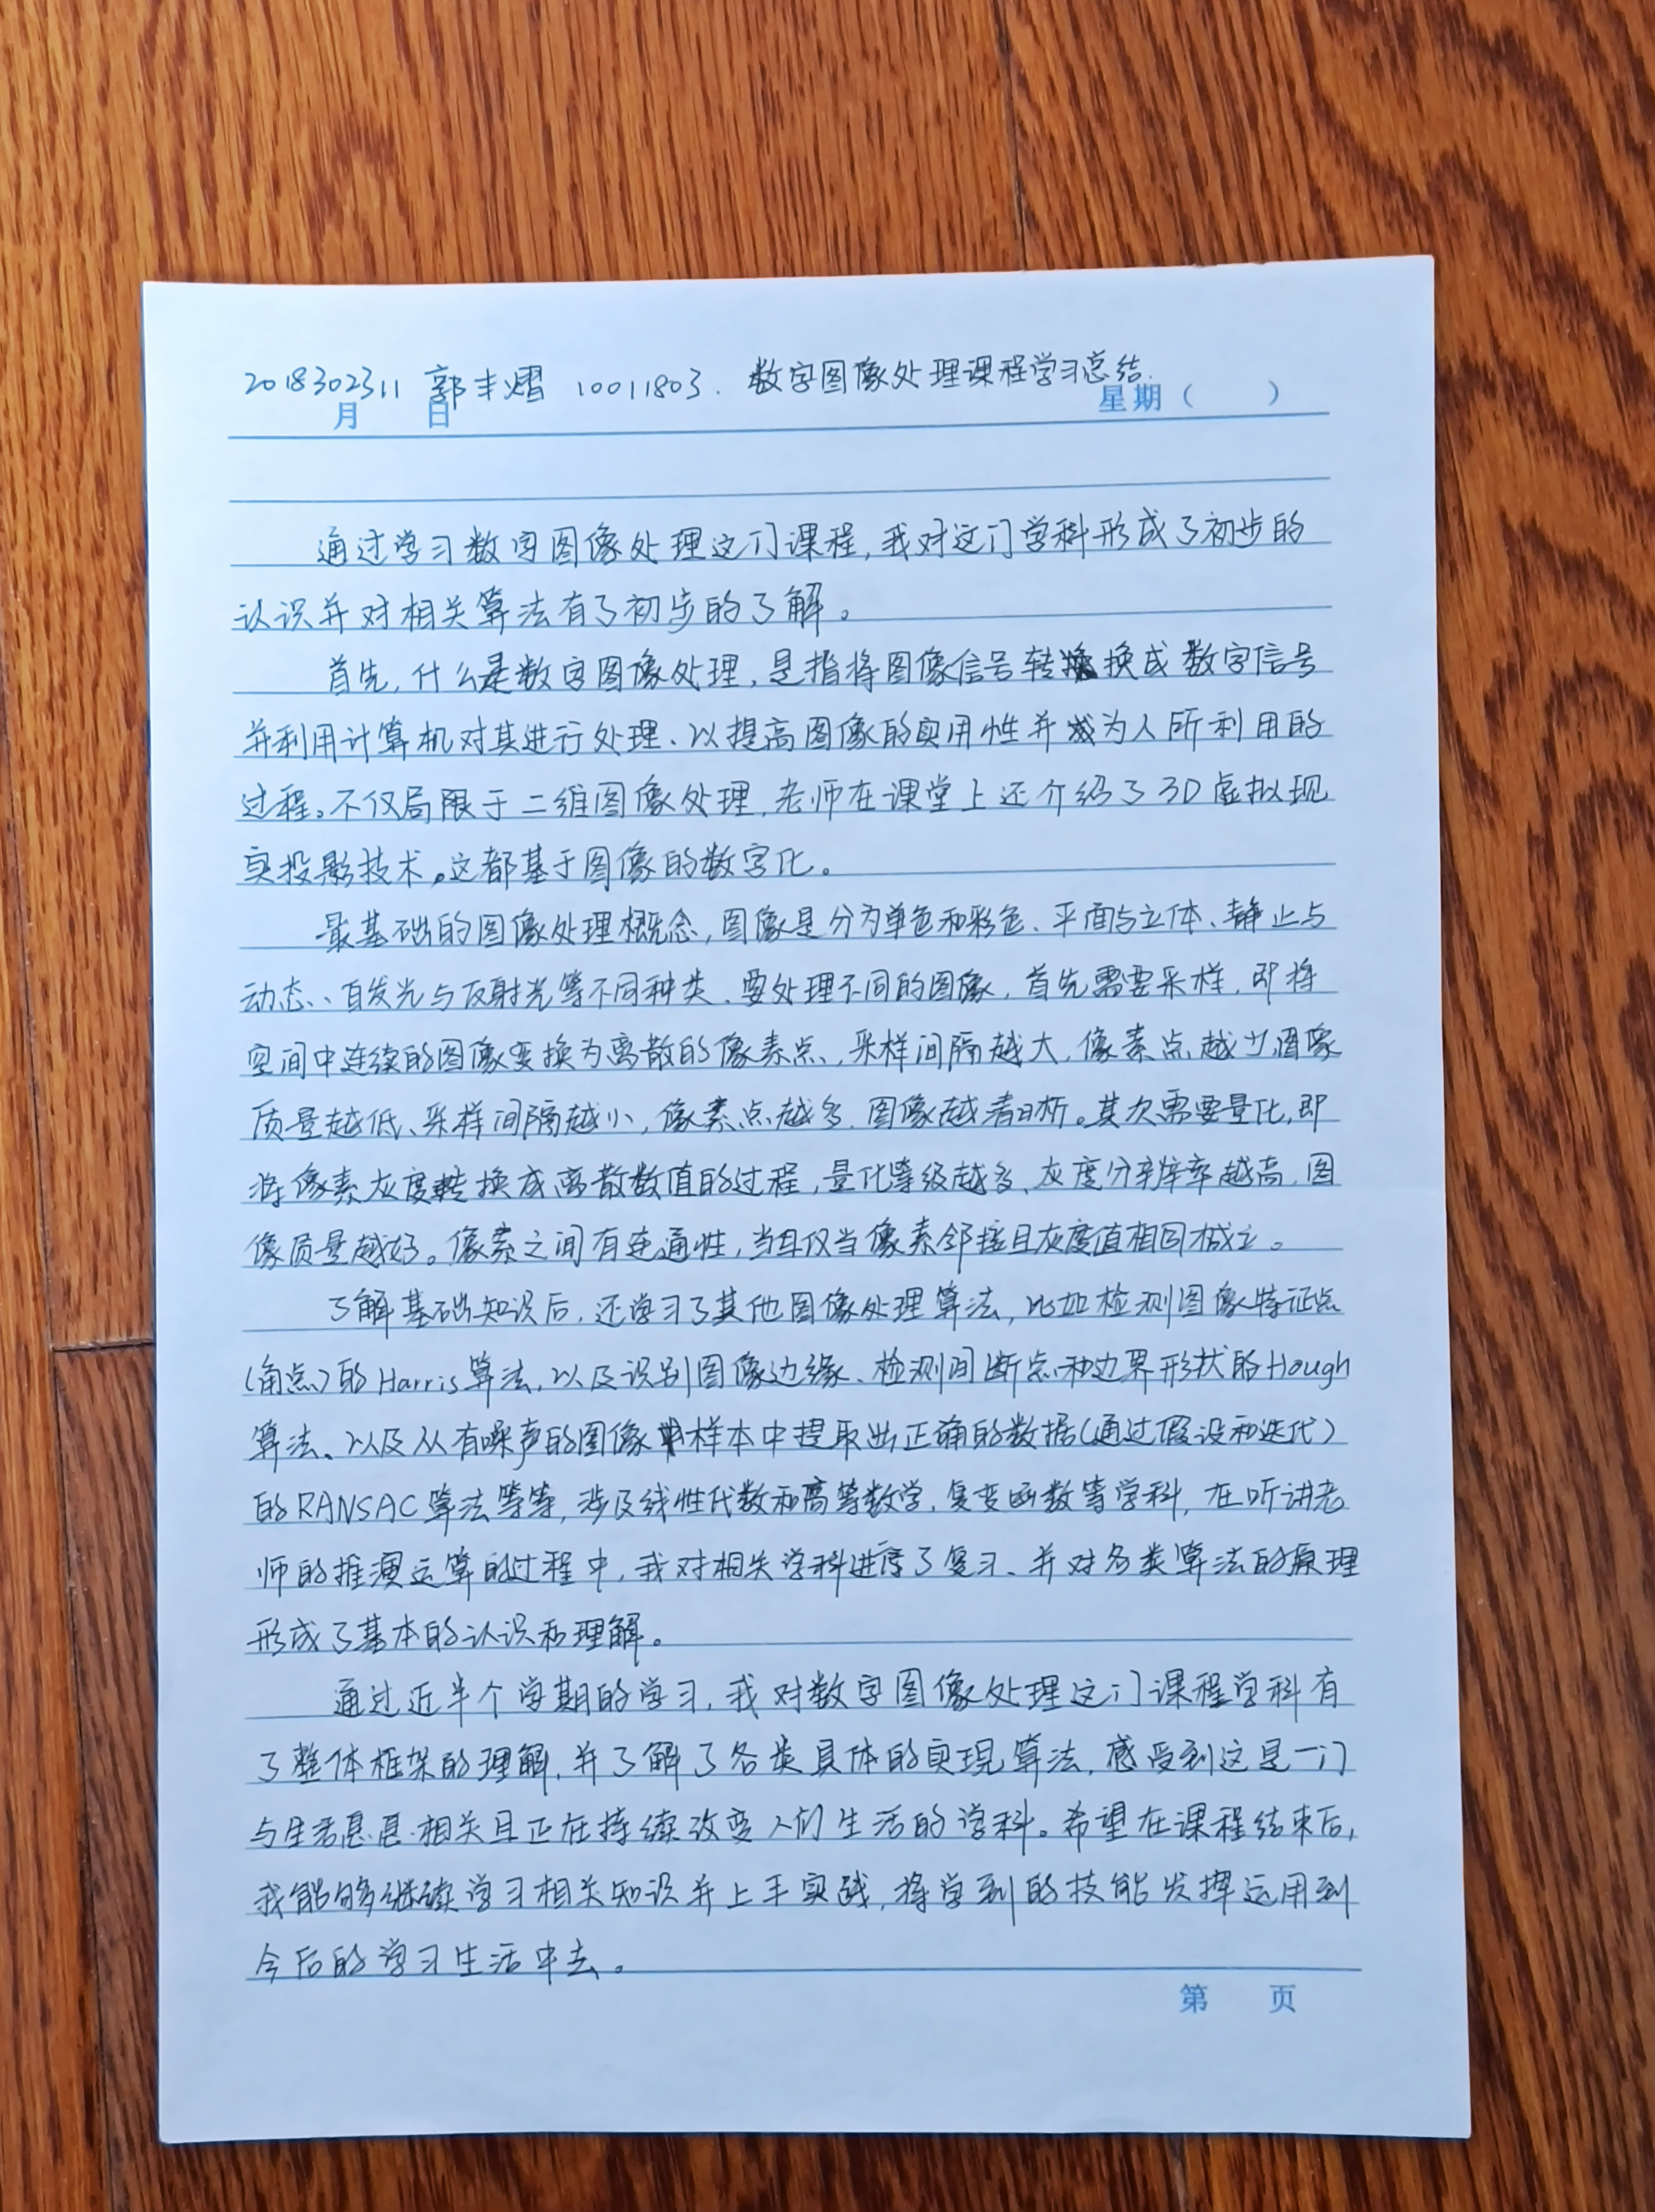 2018302311 郭丰熠 10011803. 数字图像处理课程学习总结.
月 日 星期（ ）
通过学习数字图像处理这门课程,我对这门学科形成了初步的
认识并对相关算法有了初步的了解。
首先,什么是数字图像处理,是指将图像信号转换成数字信号
并利用计算机对其进行处理、以提高图像的实用性并成为人所利用的
过程。不仅局限于二维图像处理,老师在课堂上还介绍了3D虚拟现
实投影技术,这都基于图像的数字化。
最基础的图像处理概念,图像是分为单色和彩色、平面与立体、静止与
动态、自发光与反射光等不同种类、要处理不同的图像,首先需要采样,即将
空间中连续的图像变换为离散的像素点,采样间隔越大,像素点越少,图像
质量越低、采样间隔越小,像素点越多,图像越清晰。其次需要量化,即
将像素灰度转换成离散数值的过程,量化等级越多、灰度分辨率越高,图
像质量越好。像素之间有连通性,当且仅当像素邻接且灰度值相同成立。
了解基础知识后,还学习了其他图像处理算法,比如检测图像特征点
(角点)的Harris算法,以及识别图像边缘、检测间断点和边界形状的Hough
算法、以及从有噪声的图像样本中提取出正确的数据(通过假设和迭代)
的RANSAC算法等等,涉及线性代数和高等数学,复变函数等学科,在听讲老
师的推演运算的过程中,我对相关学科进行了复习、并对各类算法的原理
形成了基本的认识和理解。
通过近半个学期的学习,我对数字图像处理这门课程学科有
了整体框架的理解,并了解了各类具体的实现算法,感受到这是一门
与生活息息相关且正在持续改变人们生活的学科。希望在课程结束后,
我能够继续学习相关知识并上手实践,将学到的技能发挥运用到
今后的学习生活中去。
第 页